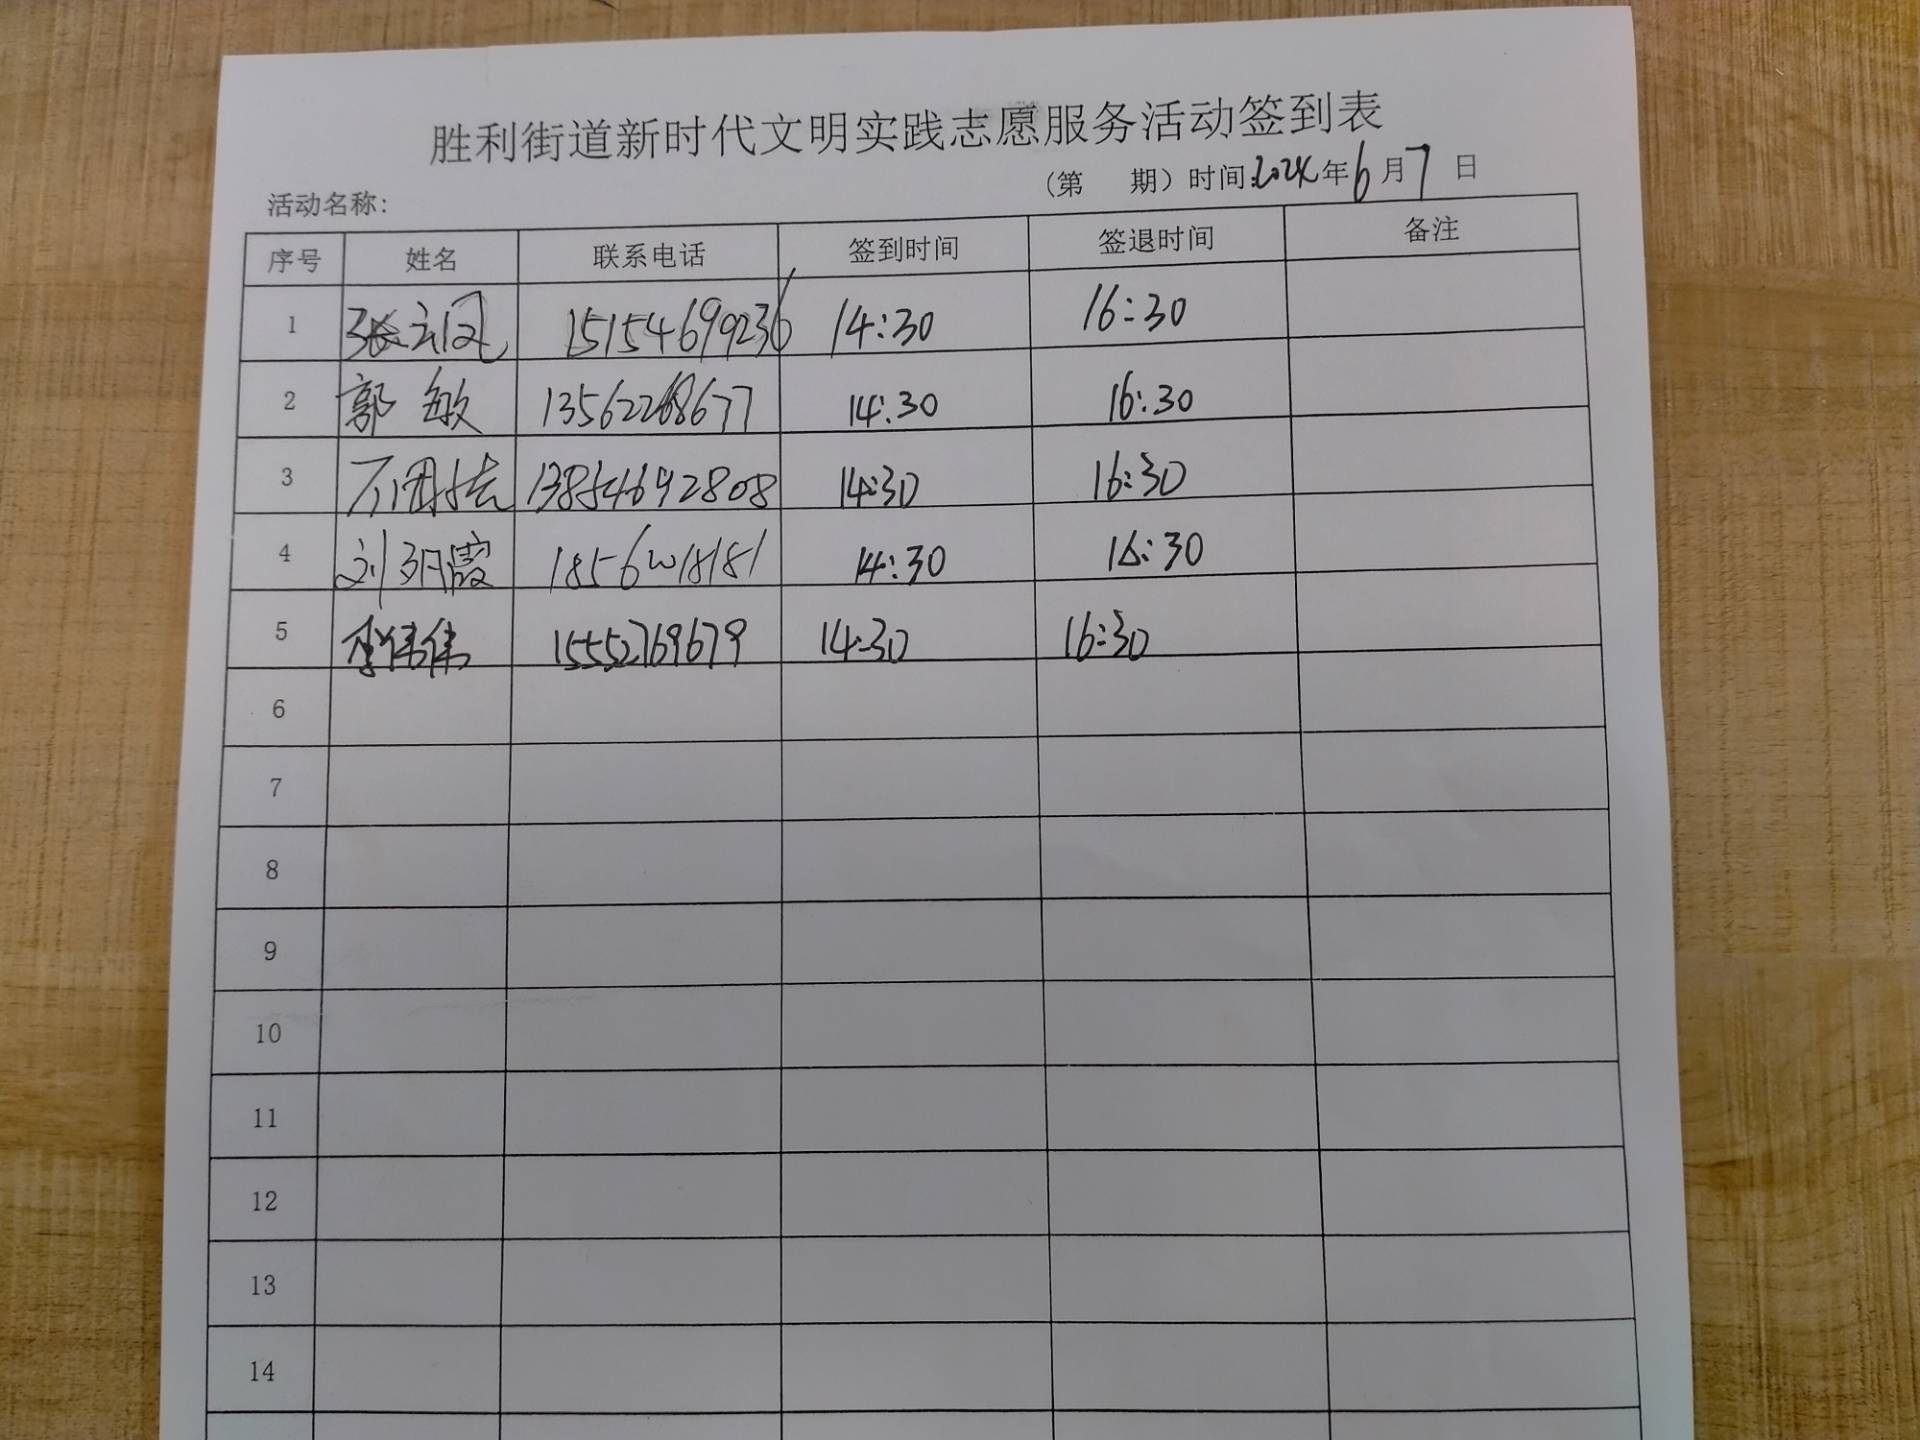 胜利街道新时代文明实践志愿服务活动签到表
活动名称: (第 期) 时间:2024年6月7日
序号 姓名 联系电话 签到时间 签退时间 备注
1 张云凤 15154699236 14:30 16:30
2 郭敏 13562268677 14:30 16:30
3 13854692808 14:30 16:30
4 刘丹霞 14:30 16:30
5 李伟伟 15552769679 14:30 16:30
6
7
8
9
10
11
12
13
14